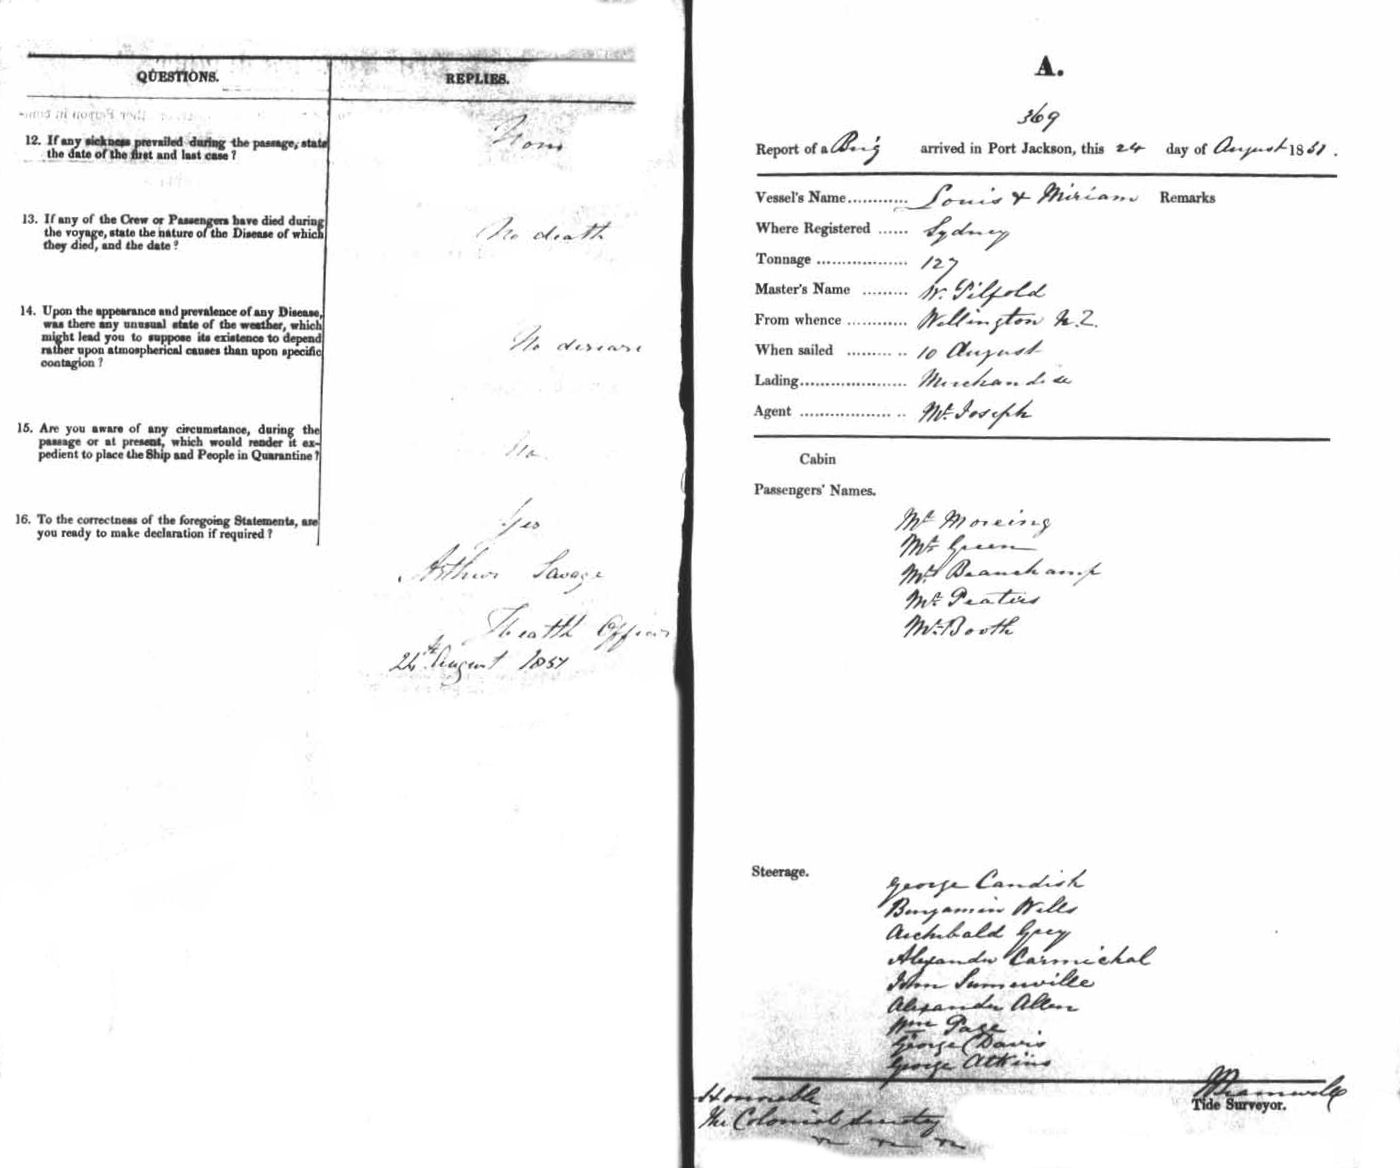 QUESTIONS. REPLIES.
12. If any sickness prevailed during the passage, state
the date of the first and last case?
None
13. If any of the Crew or Passengers have died during
the voyage, state the nature of the Disease of which
they died, and the date?
No death
14. Upon the appearance and prevalence of any Disease,
was there any unusual state of the weather, which
might lead you to suppose its existence to depend
rather upon atmospherical causes than upon specific
contagion?
No disease
15. Are you aware of any circumstance, during the
passage or at present, which would render it ex-
pedient to place the Ship and People in Quarantine?
No.
16. To the correctness of the foregoing Statements, are
you ready to make declaration if required?
Yes
Arthur Savage
Health Officer
24th August 1851
A.
369
Report of a Brig arrived in Port Jackson, this 24 day of August 1851.
Vessel's Name............ Louis & Miriam Remarks
Where Registered ...... Sydney
Tonnage .................. 127
Master's Name ......... W. Pilfold
From whence ............ Wellington N.Z.
When sailed ......... .. 10 August
Lading..................... Merchandise
Agent .................. .. Mr. Joseph
Cabin
Passengers' Names.
Mr Moreing
Mr. Green
Mr. Beauchamp
Mr. Peaters
Mr. Booth
Steerage.
George Candish
Benjamin Wells
Archibald Grey
Alexander Carmichal
John Sumerville
Alexander Allen
Wm Page
George Davis
George Atkins
Tide Surveyor.
Honorable
The Colonial Secretary